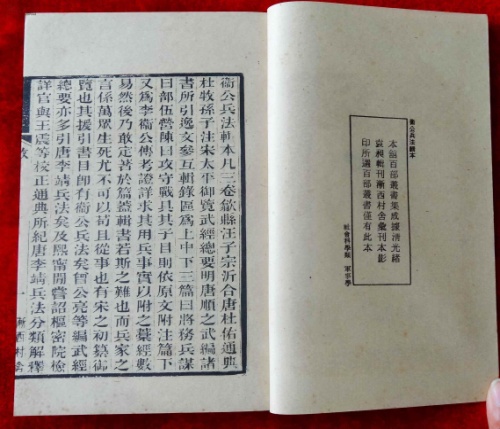 衞公兵法輯本
本館百部叢書集成據清光緒
袁昶輯刊漸西村舍彙刊本影
印所選百部叢書僅有此本
社會科學類 軍事學
衞公兵法輯本凡三卷歙縣汪子宗沂合唐杜佑通典
杜牧孫子注宋太平御覽武經總要明唐順之武編諸
書所引逸文參互輯錄區爲上中下三篇曰將務兵謀
曰部伍營陳曰攻守戰具其子目則依原文附注篇下
又爲李衞公傳考證詳求其用兵事實以附之蓋經數
易然後乃敢定著於篇葢輯書若斯之難也而兵家之
言係萬眾生死尤不可以苟且從事也有宋之初纂御
覽也其援引書目即有衞公兵法矣曾公亮等編武經
總要亦多引唐李靖兵法矣及熙甯閒嘗詔樞密院檢
詳官與王震等校正通典所紀唐李靖兵法分類解釋
一
漸西村舍